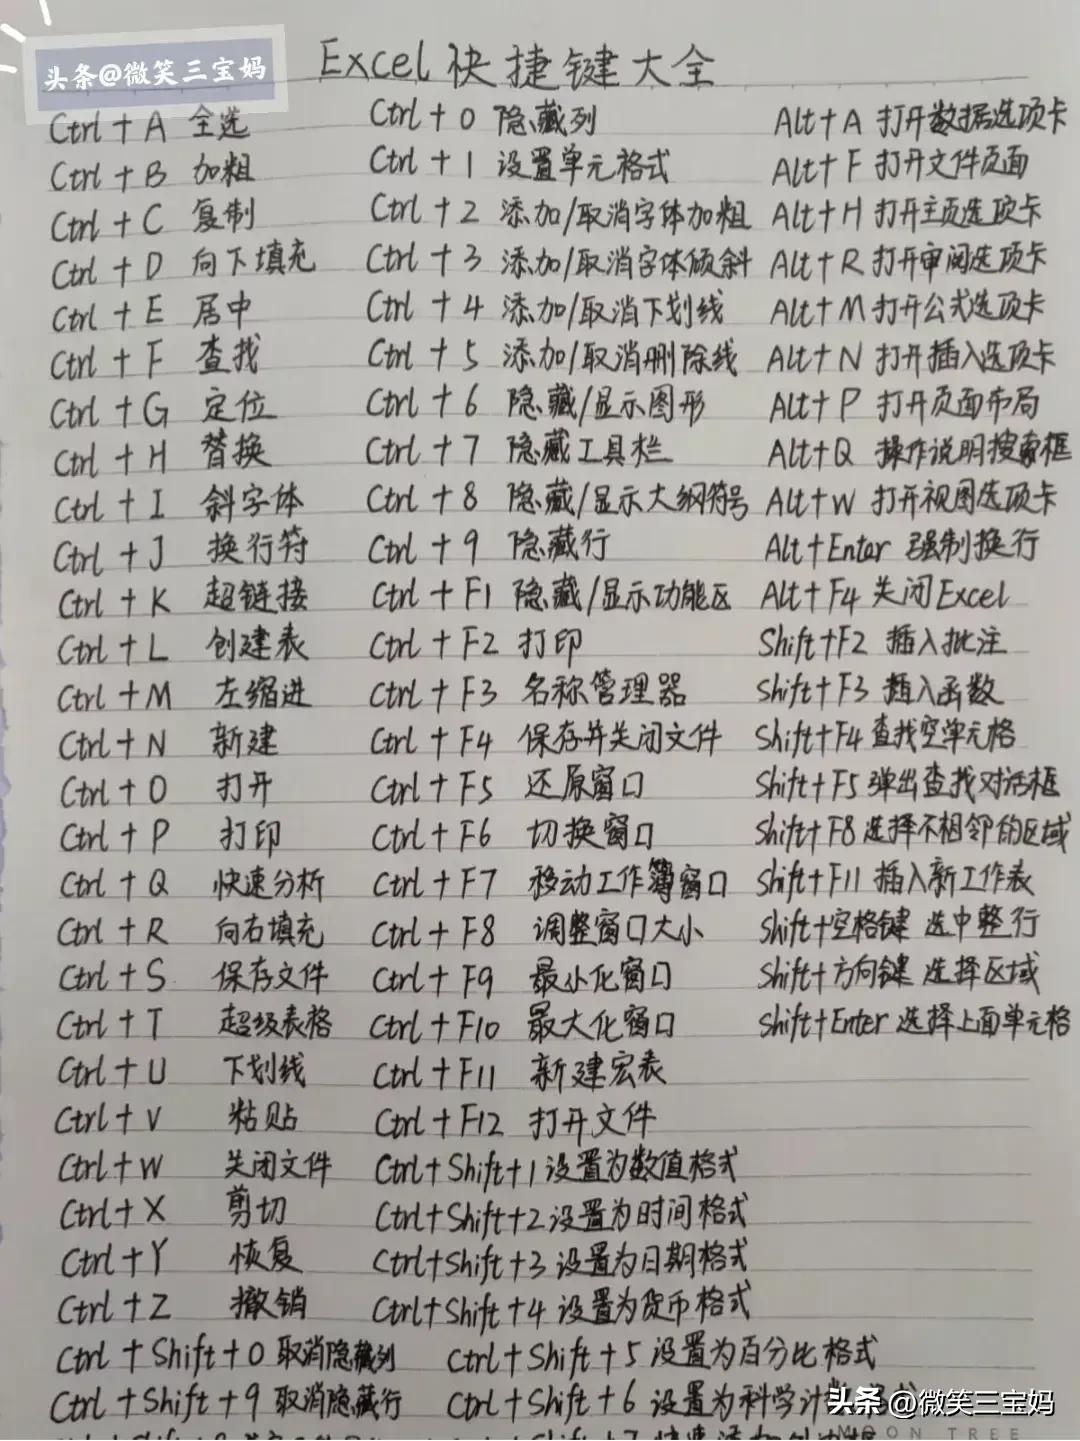 头条@微笑三宝妈
Excel 快捷键大全
Ctrl + A 全选 Ctrl + 0 隐藏列 Alt+A 打开数据选项卡
Ctrl + B 加粗 Ctrl + 1 设置单元格式 Alt+F 打开文件页面
Ctrl + C 复制 Ctrl + 2 添加/取消字体加粗 Alt+H 打开主页选项卡
Ctrl + D 向下填充 Ctrl + 3 添加/取消字体倾斜 Alt+R 打开审阅选项卡
Ctrl + E 居中 Ctrl + 4 添加/取消下划线 Alt+M 打开公式选项卡
Ctrl + F 查找 Ctrl + 5 添加/取消删除线 Alt+N 打开插入选项卡
Ctrl + G 定位 Ctrl + 6 隐藏/显示图形 Alt+P 打开页面布局
Ctrl + H 替换 Ctrl + 7 隐藏工具栏 Alt+Q 操作说明搜索框
Ctrl + I 斜字体 Ctrl + 8 隐藏/显示大纲符号 Alt+W 打开视图选项卡
Ctrl + J 换行符 Ctrl + 9 隐藏行 Alt+Enter 强制换行
Ctrl + K 超链接 Ctrl + F1 隐藏/显示功能区 Alt+F4 关闭Excel
Ctrl + L 创建表 Ctrl + F2 打印 Shift+F2 插入批注
Ctrl + M 左缩进 Ctrl + F3 名称管理器 Shift+F3 插入函数
Ctrl + N 新建 Ctrl + F4 保存并关闭文件 Shift+F4 查找空单元格
Ctrl + O 打开 Ctrl + F5 还原窗口 Shift+F5 弹出查找对话框
Ctrl + P 打印 Ctrl + F6 切换窗口 Shift+F8 选择不相邻的区域
Ctrl + Q 快速分析 Ctrl + F7 移动工作簿窗口 Shift+F11 插入新工作表
Ctrl + R 向右填充 Ctrl + F8 调整窗口大小 Shift+空格键 选中整行
Ctrl + S 保存文件 Ctrl + F9 最小化窗口 Shift+方向键 选择区域
Ctrl + T 超级表格 Ctrl + F10 最大化窗口 Shift+Enter 选择上面单元格
Ctrl + U 下划线 Ctrl + F11 新建宏表
Ctrl + V 粘贴 Ctrl + F12 打开文件
Ctrl + W 关闭文件 Ctrl+Shift+1 设置为数值格式
Ctrl + X 剪切 Ctrl+Shift+2 设置为时间格式
Ctrl + Y 恢复 Ctrl+Shift+3 设置为日期格式
Ctrl + Z 撤销 Ctrl+Shift+4 设置为货币格式
Ctrl + Shift + 0 取消隐藏列 Ctrl + Shift + 5 设置为百分比格式
Ctrl + Shift + 9 取消隐藏行 Ctrl + Shift + 6 设置为科学计
头条@微笑三宝妈
MOON TREE